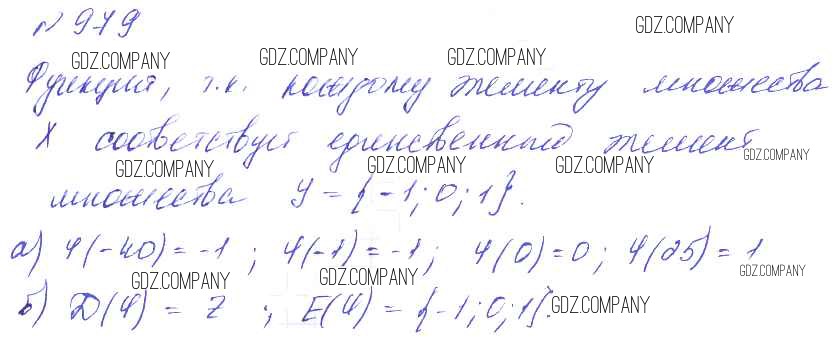 № 979
GDZ.COMPANY
GDZ.COMPANY GDZ.COMPANY GDZ.COMPANY
Функция, т.к. каждому элементу множества
X соответствует единсвенный элемент
GDZ.COMPANY GDZ.COMPANY GDZ.COMPANY GDZ.COMPANY
множества Y = {-1; 0; 1}.
а) φ(-40) = -1 ; φ(-1) = -1; φ(0) = 0; φ(25) = 1
GDZ.COMPANY GDZ.COMPANY GDZ.COMPANY
б) D(φ) = Z ; E(φ) = {-1; 0; 1}. GDZ.COMPANY